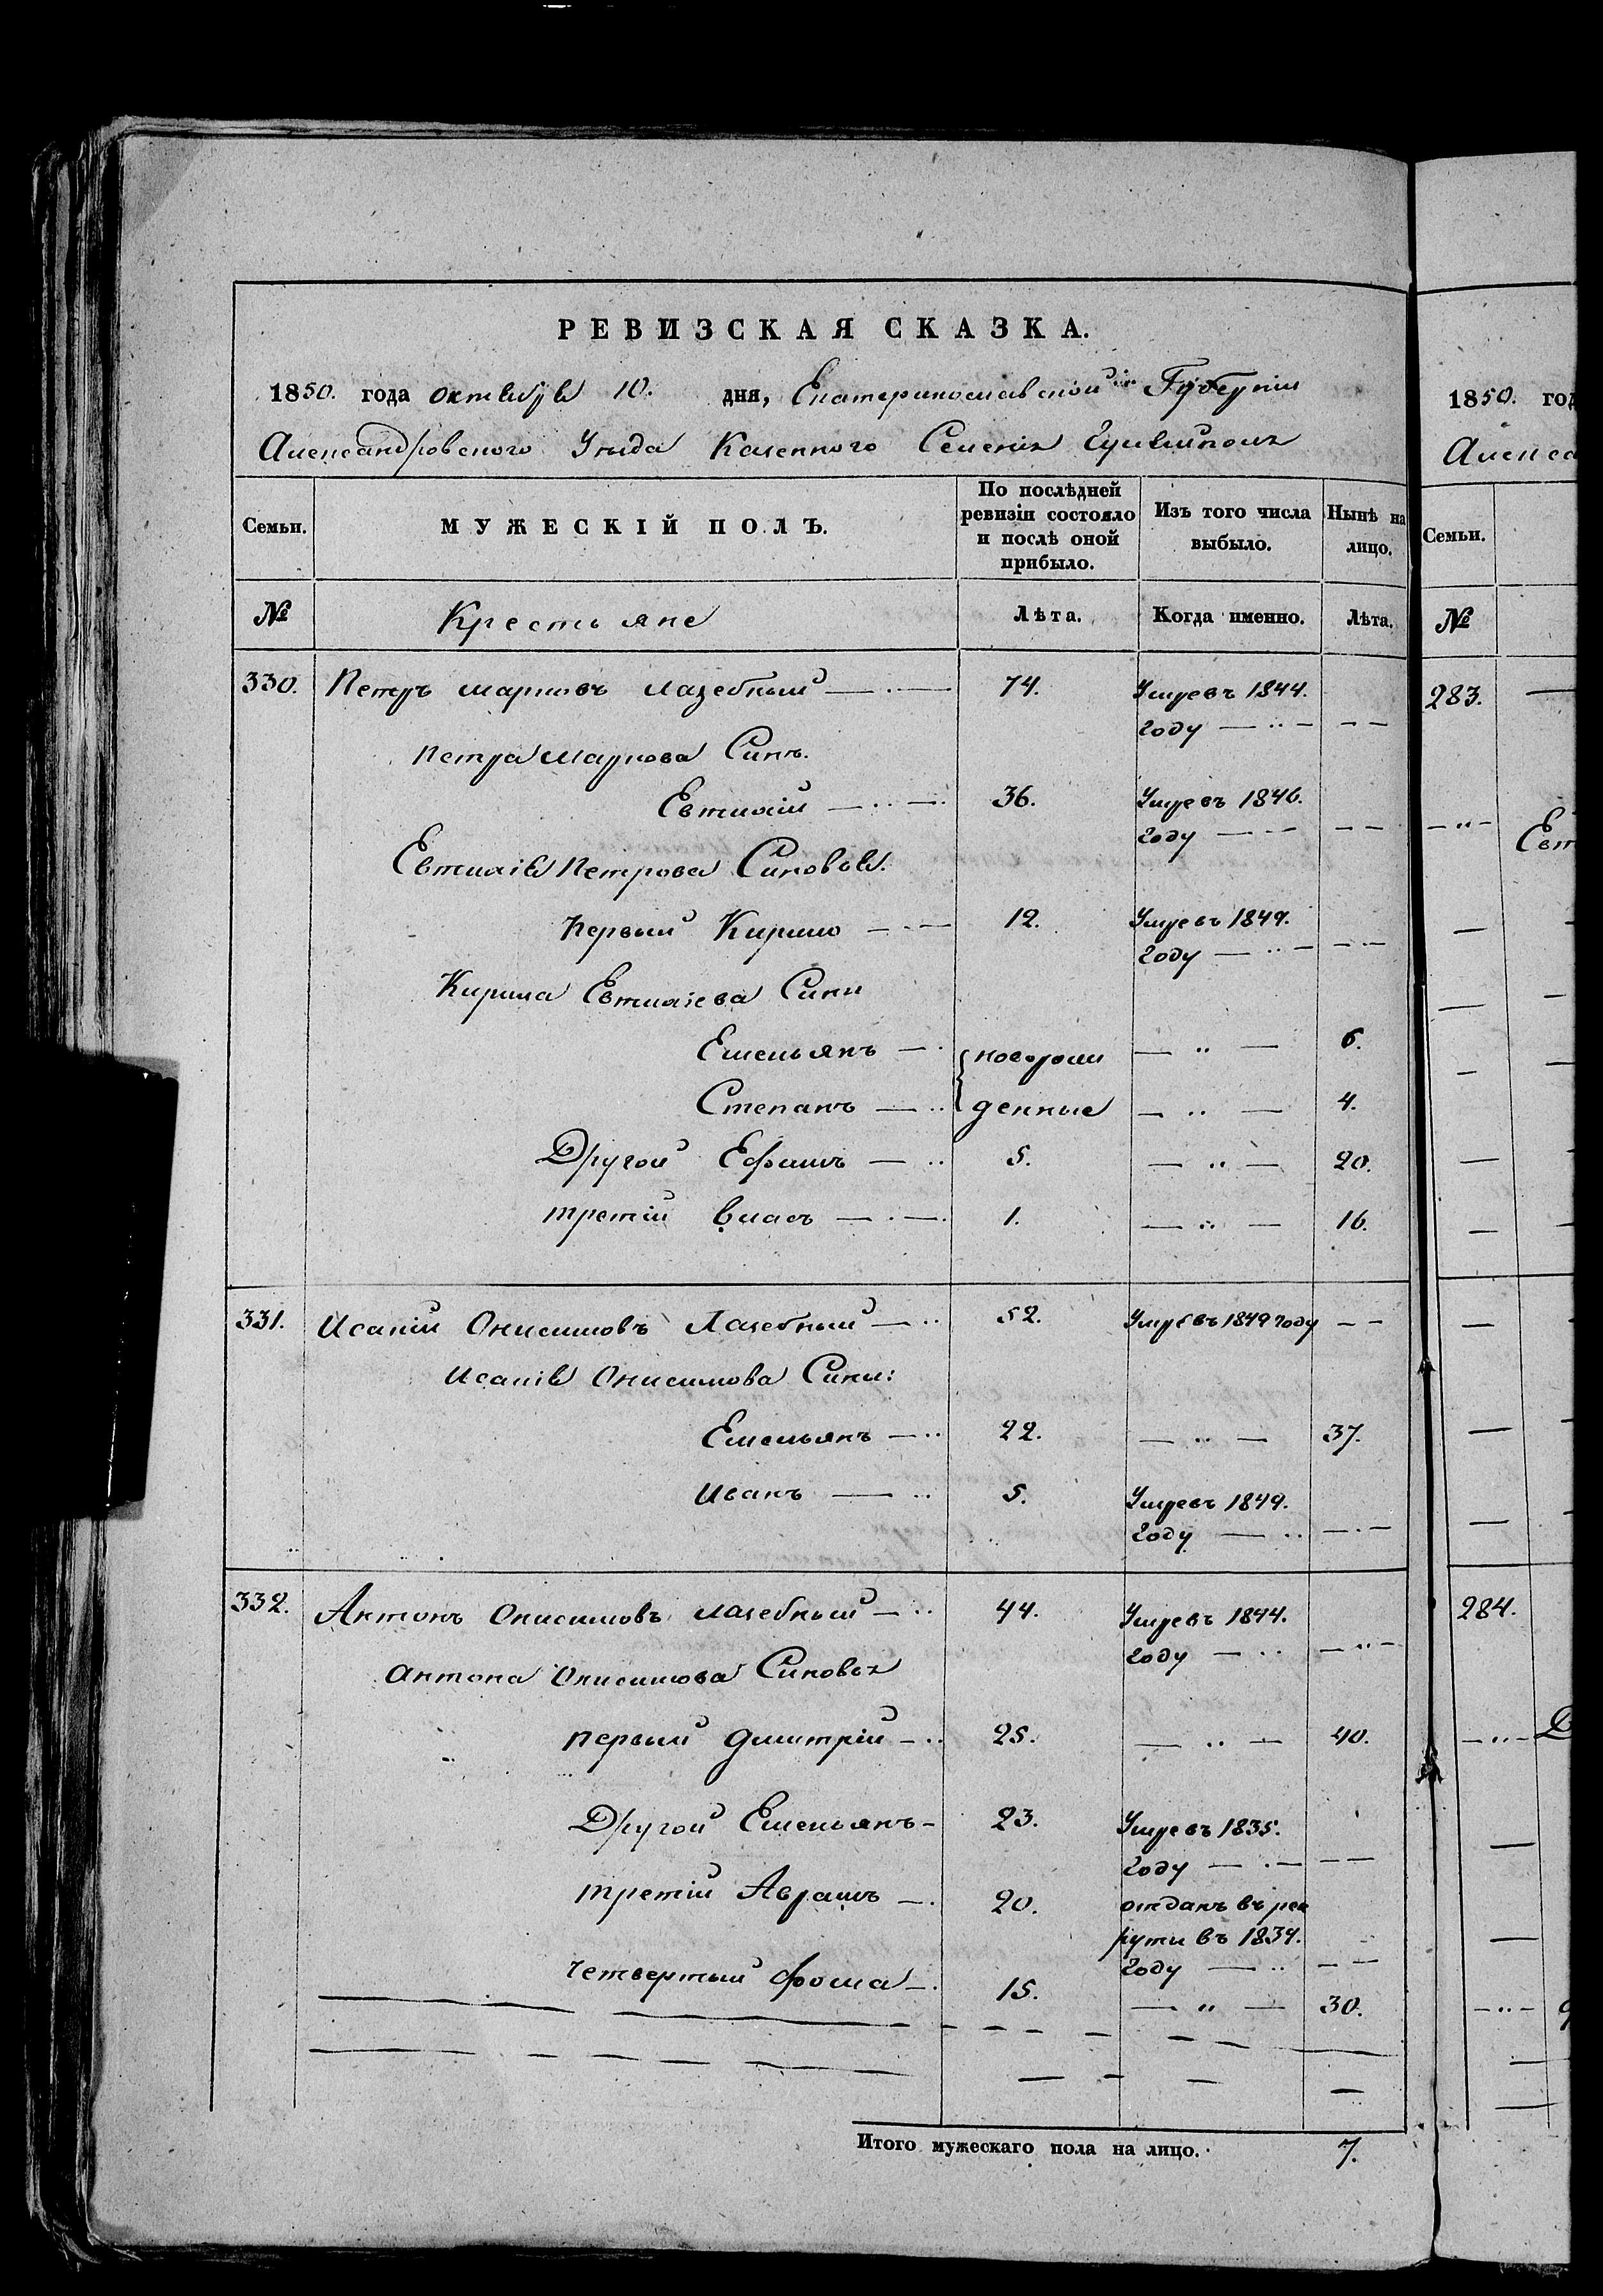 РЕВИЗСКАЯ СКАЗКА.
1850. года октября 10. дня, Екатеринославской Губерніи
Александровского Уезда Казенного Селенія Гуляйполя
Семьи. МУЖЕСКІЙ ПОЛЪ. По послѣдней ревизіи состояло и послѣ оной прибыло. Изъ того числа выбыло. Нынѣ на лицо.
№ Крестьяне Лѣта. Когда именно. Лѣта.
330. Петръ Марковъ Лазебный 74. Умре въ 1844.
году
Петра Маркова Синъ.
Евтихій 36. Умре въ 1846.
году
Евтихія Петрова Синовья.
первый Кирило 12. Умре въ 1849.
году
Кирила Евтихіева Сини
Емельянъ новорож 6.
Степанъ денные 4.
Другой Ефимъ 5. 20.
третій Власъ 1. 16.
331. Исакій Онисимовъ Лазебный 52. Умре въ 1849 году
Исакія Онисимова Сини:
Емельянъ 22. 37.
Иванъ 5. Умре въ 1849.
году
332. Антонъ Онисимовъ Лазебный 44. Умре въ 1844.
году
Антона Онисимова Синовья
первый Дмитрій 25. 40.
Другой Емельянъ 23. Умре въ 1835.
году
третій Аврамъ 20. отданъ въ рек
рути въ 1834.
году
Четвертый Фома 15. 30.
Итого мужескаго пола на лицо. 7.
1850. год
Алекса
Семьи.
№
283.
Евт
284.
Д